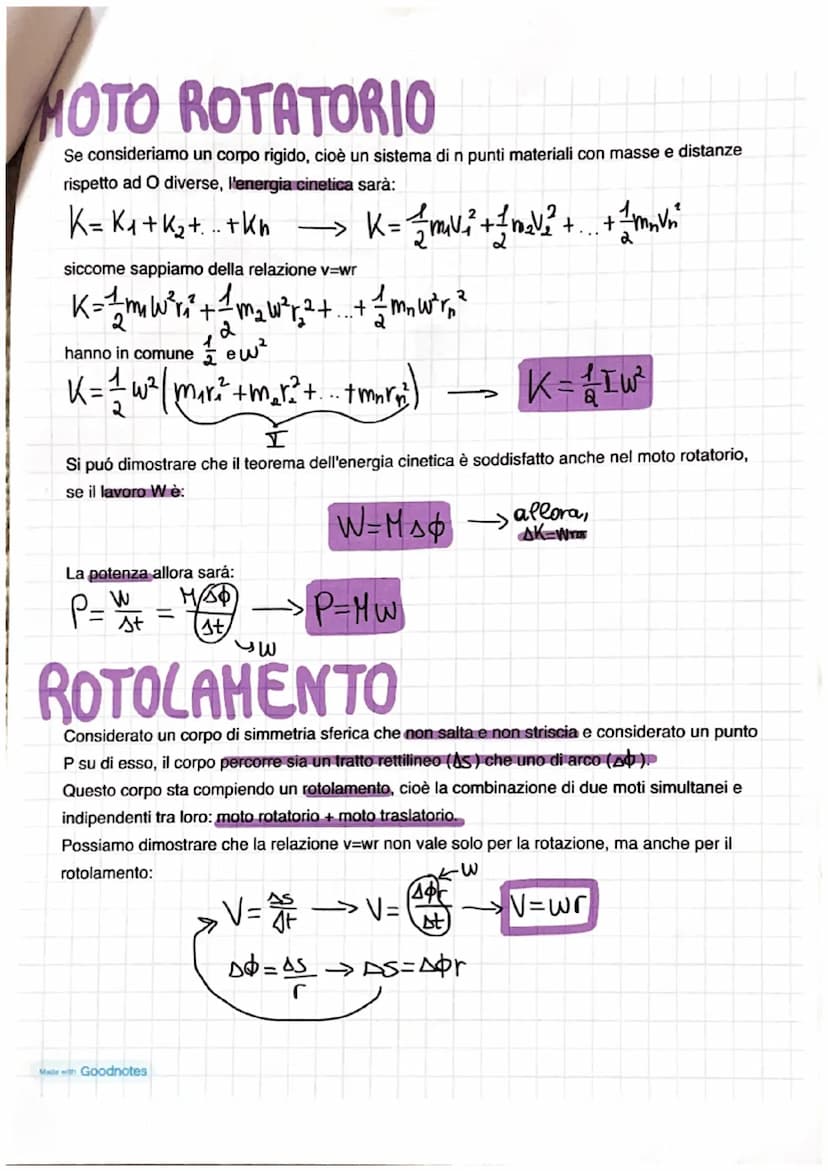 MOTO ROTATORIO
Se consideriamo un corpo rigido, cioè un sistema di n punti materiali con masse e distanze
rispetto ad O diverse, l'energia cinetica sarà:
K = K₁ + K₂ + ... + Kn → K = 1/2 m₁v₁² + 1/2 m₂v₂² + ... + 1/2 mnvn²
siccome sappiamo della relazione v=wr
K = 1/2 m₁w²r₁² + 1/2 m₂w²r₂² + ... + 1/2 mnw²rn²
hanno in comune 1/2 e w²
K = 1/2 w² (m₁r₁² + m₂r₂² + ... + mnrn²) → K = 1/2 Iw²
I
Si puó dimostrare che il teorema dell'energia cinetica è soddisfatto anche nel moto rotatorio,
se il lavoro W è:
W = MΔϕ → allora,
ΔK=W
La potenza allora sará:
P = W/Δt = MΔϕ/Δt → P = Mw
↳ w
ROTOLAMENTO
Considerato un corpo di simmetria sferica che non salta e non striscia e considerato un punto
P su di esso, il corpo percorre sia un tratto rettilineo (Δs) che uno di arco (Δϕ).
Questo corpo sta compiendo un rotolamento, cioè la combinazione di due moti simultanei e
indipendenti tra loro: moto rotatorio + moto traslatorio.
Possiamo dimostrare che la relazione v=wr non vale solo per la rotazione, ma anche per il
rotolamento:
← w
V = Δs/Δt → V = Δϕr/Δt → V = wr
Δϕ = Δs/r → Δs = Δϕr
Made with Goodnotes